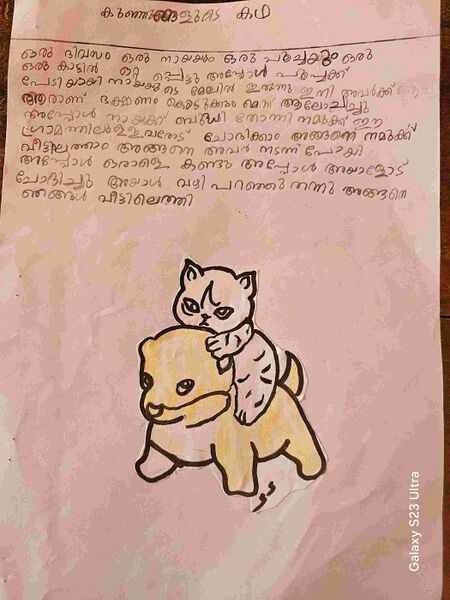 കുഞ്ഞുങ്ങളുടെ കഥ
ഒരു ദിവസം ഒരു നായയും ഒരു പൂച്ചയും ഒരു
ഒരു കാട്ടിൽ ഒറ്റ പ്പെട്ടു അപ്പോൾ പൂച്ചക്ക്
പേടിയായി നായയുടെ മേലിൽ ഇരുന്നു ഇനി അവർക്ക്
ആരാണ് ഭക്ഷണം കൊടുക്കുക എന്ന് ആലോചിച്ചു
അപ്പോൾ നായക്ക് ബുദ്ധി തോന്നി നമുക്ക് ഈ
ഗ്രാമത്തിലുള്ളവരോട് ചോദിക്കാം അങ്ങനെ നമുക്ക്
വീട്ടിലെത്താം അങ്ങനെ അവർ നടന്ന് പോയി
അപ്പോൾ ഒരാളെ കണ്ടു അപ്പോൾ അയാളോട്
ചോദിച്ചു അയാൾ വഴി പറഞ്ഞു തന്നു അങ്ങനെ
ഞങ്ങൾ വീട്ടിലെത്തി
Galaxy S23 Ultra